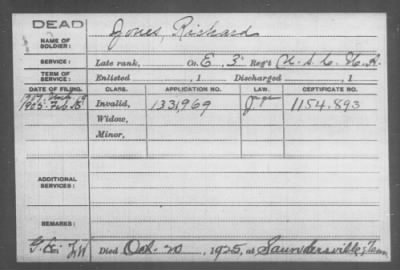 DEAD
NAME OF SOLDIER: Jones, Richard
SERVICE: Late rank, Co. E, 3" Reg't U.S.C.H.A.
TERM OF SERVICE: Enlisted , 1 Discharged , 1
DATE OF FILING. CLASS. APPLICATION NO. LAW. CERTIFICATE NO.
1905 Feb. Invalid, 1331,969 1154.893
Widow,
Minor,
ADDITIONAL SERVICES:
REMARKS:
Died Oct. 20, 1925, at Saundersville, Tenn